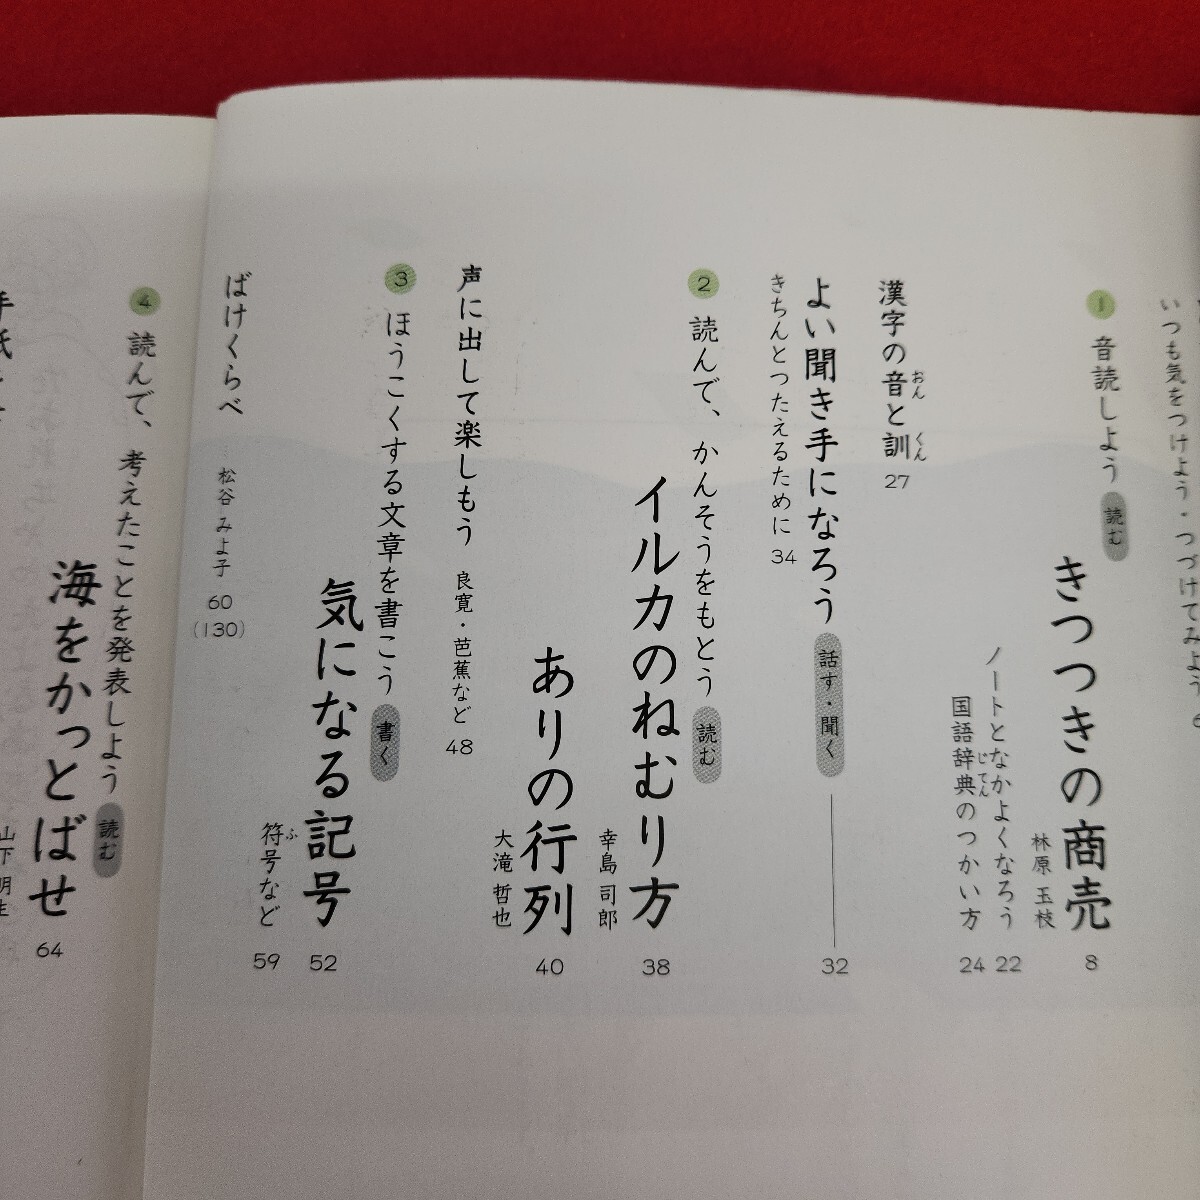 いつも気をつけよう・つづけてみよう
1 音読しよう 読む
きつつきの商売
林原 玉枝
8
ノートとなかよくなろう 22
国語辞典のつかい方 24
じてん
漢字の音と訓 27
おん
くん
よい聞き手になろう 話す・聞く 32
きちんとつたえるために 34
2 読んで、かんそうをもとう 読む
イルカのねむり方
幸島 司郎
38
ありの行列
大滝 哲也
40
声に出して楽しもう 良寛・芭蕉など 48
3 ほうこくする文章を書こう 書く
気になる記号 52
符号など 59
ふ
ばけくらべ 松谷 みよ子 60
(130)
4 読んで、考えたことを発表しよう 読む
海をかっとばせ
山下 明生
64